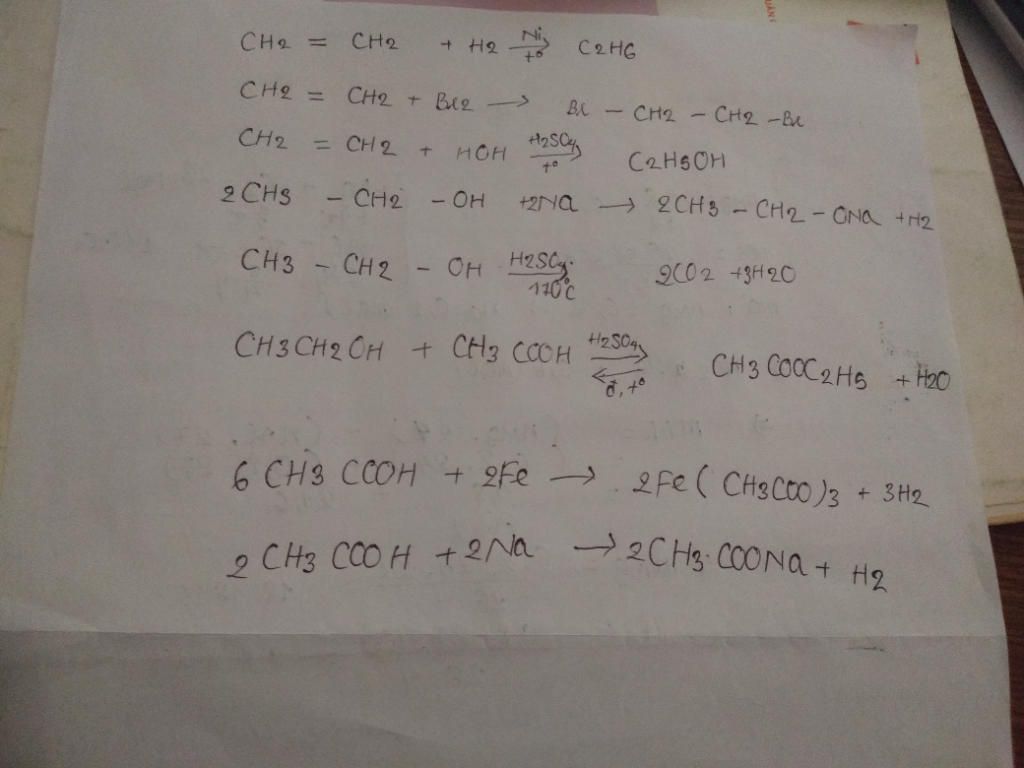 CH2 = CH2 + H2 Ni t° → C2H6
CH2 = CH2 + Br2 → Br - CH2 - CH2 - Br
CH2 = CH2 + HOH H2SO4 t° → C2H5OH
2CH3 - CH2 - OH +2Na → 2CH3 - CH2 - ONa + H2
CH3 - CH2 - OH H2SO4 170°C → 2CO2 +3H2O
CH3CH2OH + CH3COOH H2SO4 đ, t° ⇌ CH3COOC2H5 + H2O
6 CH3COOH + 2Fe → 2Fe(CH3COO)3 + 3H2
2 CH3COOH + 2Na → 2CH3.COONa + H2